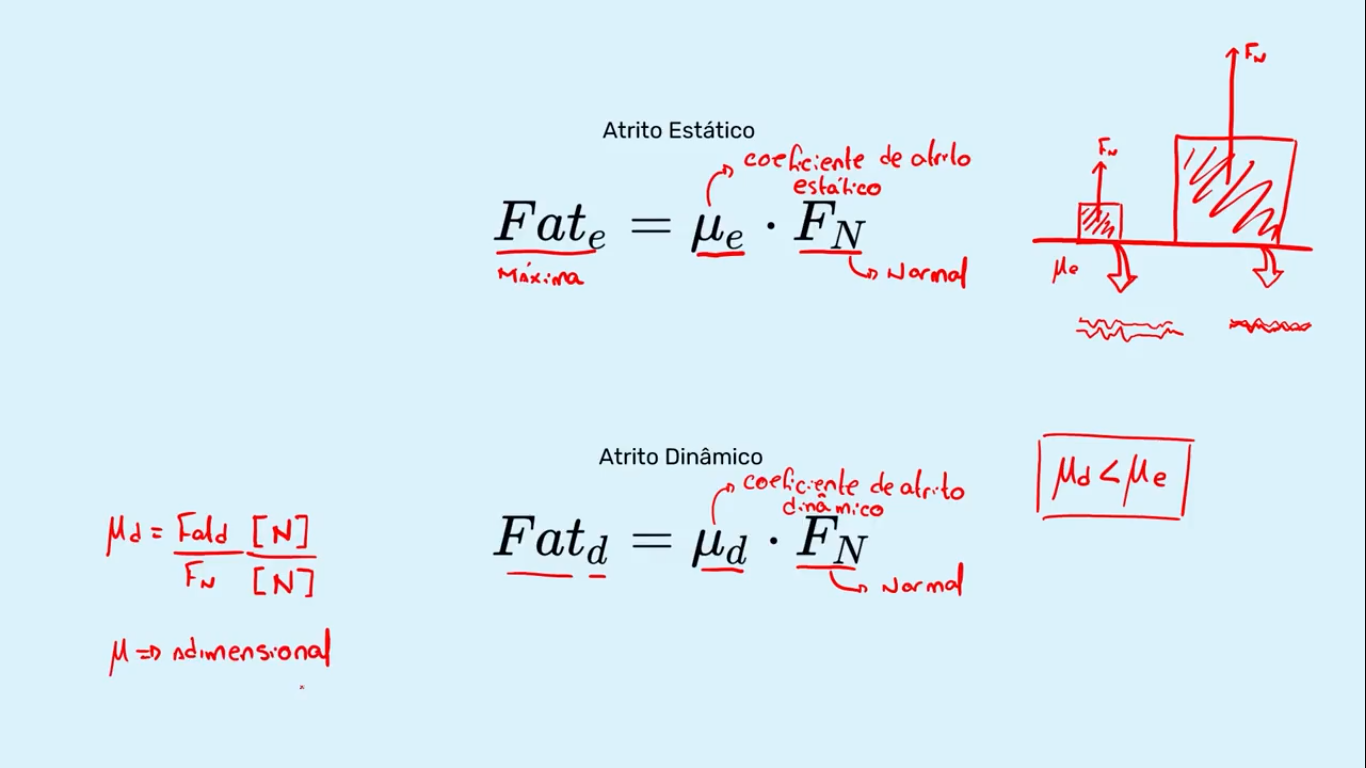 Atrito Estático
coeficiente de atrito
estático
Fatₑ = μₑ · F_N
Máxima
Normal
F_N
F_N
μe
Atrito Dinâmico
coeficiente de atrito
dinâmico
Fat_d = μ_d · F_N
Normal
μd < μe
μd = Fatd [N]
F_N [N]
μ ⇒ adimensional